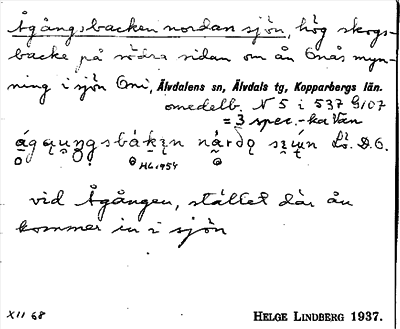 Ågångsbacken nordan sjön, hög skogs-
backe på södra sidan om ån Onås myn-
ning i sjön Oni, Älvdalens sn, Älvdals tg, Kopparbergs län.
omedelb. N 5 i 537 9/07
= 3 spec.-kartan
HL 1954
vid Ågången, stället där ån
kommer in i sjön
XII 68
HELGE LINDBERG 1937.